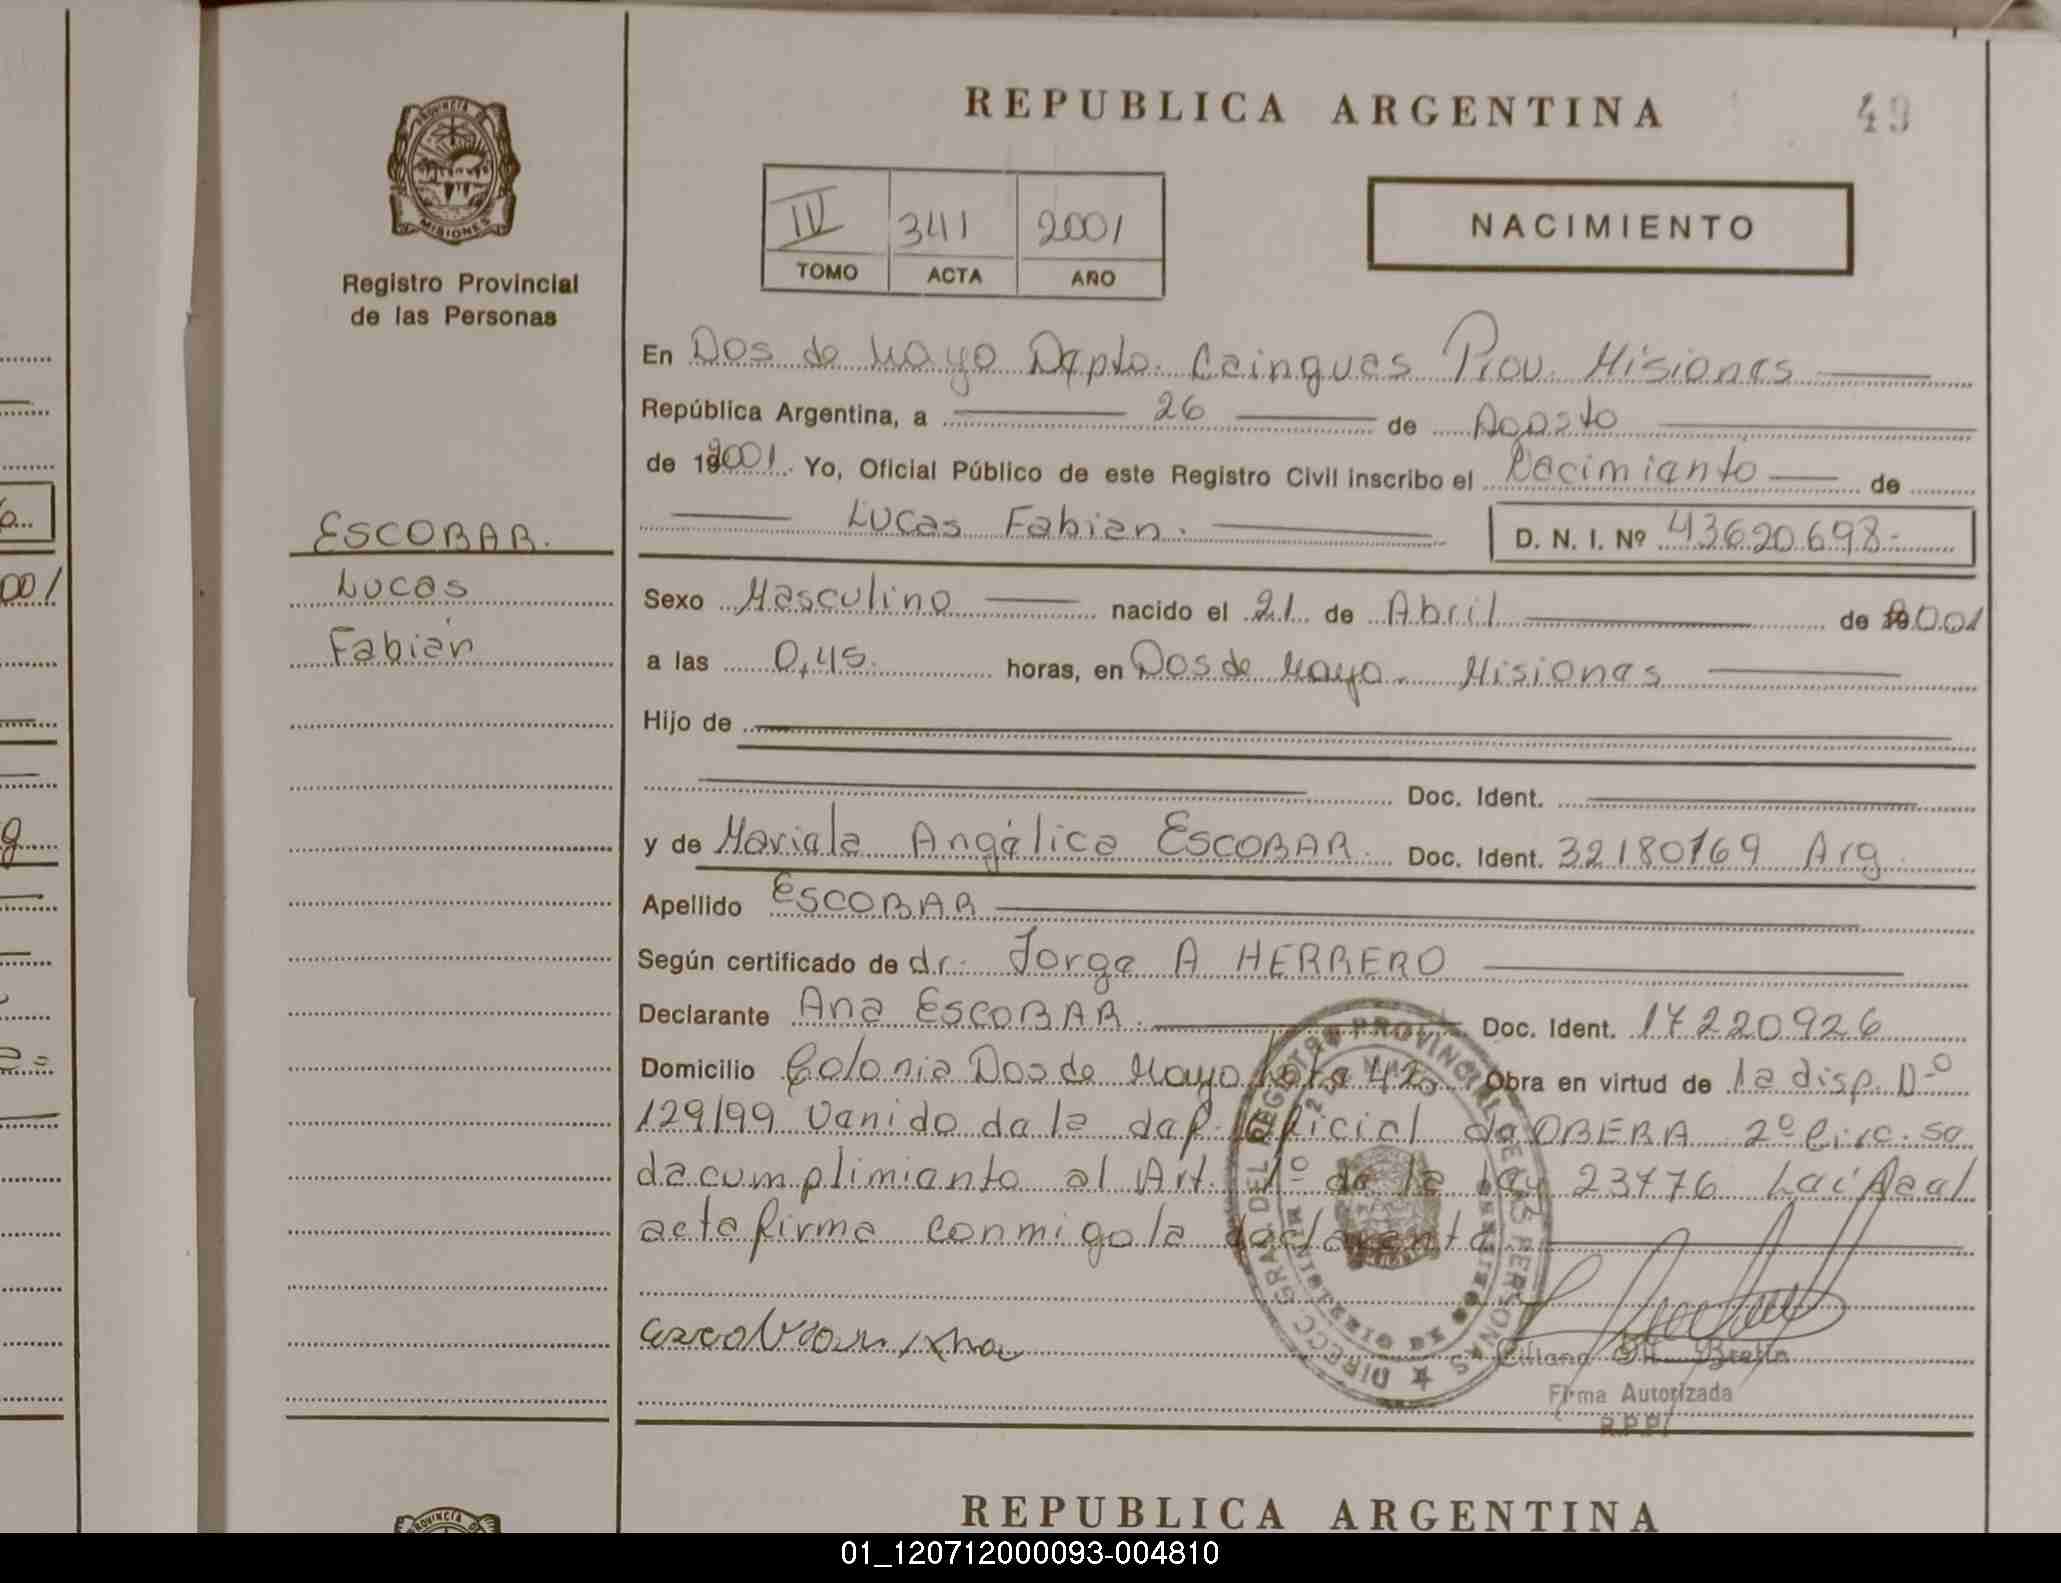 REPUBLICA ARGENTINA
49
PROVINCIA DE
MISIONES
Registro Provincial
de las Personas
III 341 2001
TOMO ACTA AÑO
NACIMIENTO
En Dos de Mayo Depto. Cainguas Prov. Misiones
República Argentina, a 26 de Agosto
de 192001. Yo, Oficial Público de este Registro Civil inscribo el Nacimiento de
Lucas Fabian. D. N. I. Nº 43620698-
ESCOBAR.
Lucas
Fabián
Sexo Masculino nacido el 21 de Abril de 2001
a las 0,45 horas, en Dos de Mayo. Misiones
Hijo de
Doc. Ident.
y de Mariela Angélica ESCOBAR. Doc. Ident. 32180169 Arg.
Apellido ESCOBAR
Según certificado de dr. Jorge A HERRERO
Declarante Ana ESCOBAR. Doc. Ident. 17220926
Domicilio Colonia Dos de Mayo Lote 42 Obra en virtud de la disp. Nº
129/99 Venido de la dep. de OBERA 2º Circ. se
da cumplimiento al Art. 1º de la Ley 23776 Leí Aeal
acta firma conmigo la declarante
escobar Ana
DIRECC. GRAL. DEL REGISTRO PROVINCIAL DE LAS PERSONAS
2 DE MAYO
Firma Autorizada
R.P.P.
REPUBLICA ARGENTINA
01_120712000093-004810